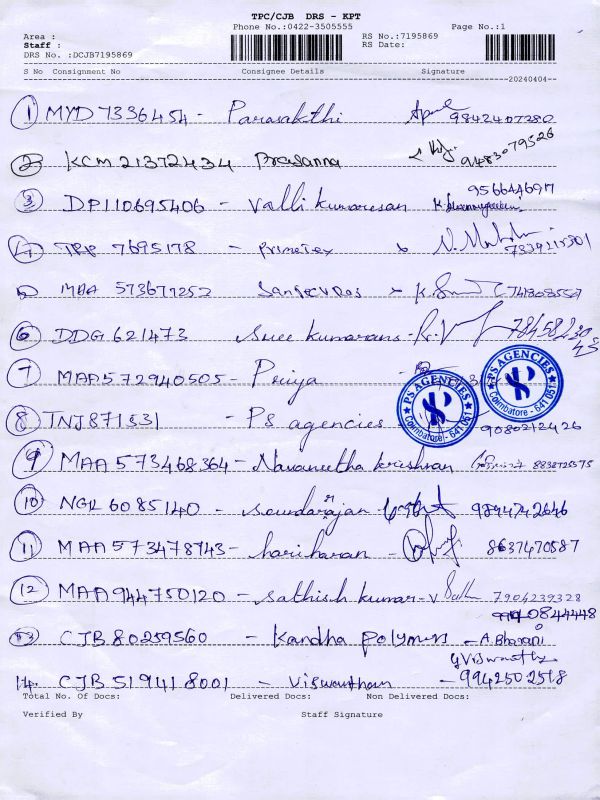 TPC/CJB DRS - KPT
Phone No.:0422-3505555 Page No.:1
Area : RS No.:7195869
Staff : RS Date:
DRS No. :DCJB7195869
S No Consignment No Consignee Details Signature
20240404
1 MYD 7336454 - Parasakthi 9842407280
2 KCM 21372434 Prasanna 9483079526
3 DP110695406 - Valli kumaresan 956644697
4 7695178 - Primetex
5 MAA 573677252
6 DDG 621473 Sree kumarans -
7 MAA572940505 - Priya
PS AGENCIES Coimbatore - 641 051.
PS AGENCIES Coimbatore - 641 051.
8 TNJ871331 - PS agencies 9080212426
9 MAA 573468364 - Navaneetha krishnan 8838725575
10 NGL 6085140 - soundarajan 9894742646
11 MAA 573478943 - hariharan - 8637470587
12 MAA944750120 - Sathish kumar - 7904239328
0844448
13 CJB 80259560 - Kandha polymers - A. Bharani
G Viswanth
14. CJB 519418001 - Viswantham - 9942502518
Total No. Of Docs: Delivered Docs: Non Delivered Docs:
Verified By Staff Signature